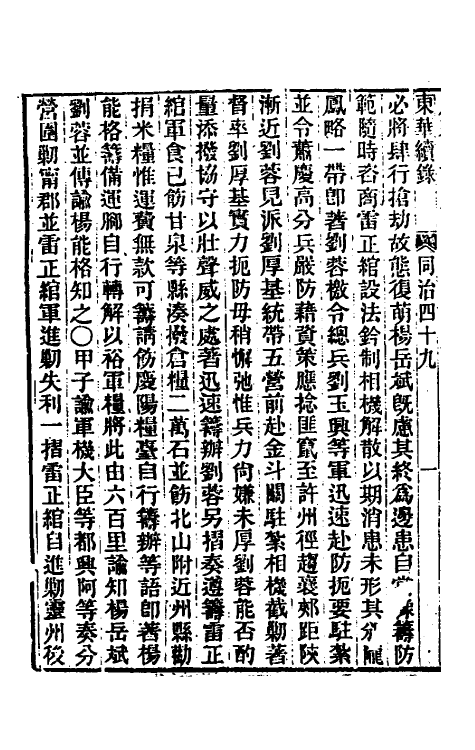 東華續錄 同治四十九 一
必將肆行搶劫故態復萌楊岳斌旣慮其終爲邊患自當 籌防
範隨時咨商雷正綰設法鈐制相機解散以期消患未形其分 隴
鳳略一帶卽著劉蓉檄令總兵劉玉興等軍迅速赴防扼要駐紮
並令蕭慶高分兵嚴防藉資策應捻匪竄至許州徑趨襄郟距陝
漸近劉蓉見派劉厚基統帶五營前赴金斗關駐紮相機截勦著
督率劉厚基實力扼防毋稍懈弛惟兵力尙嫌未厚劉蓉能否酌
量添撥協守以壯聲威之處著迅速籌辦劉蓉另摺奏遵籌雷正
綰軍食已飭甘泉等縣湊撥倉糧二萬石並飭北山附近州縣勸
捐米糧惟運費無款可籌請飭慶陽糧臺自行籌辦等語卽著楊
能格籌備運腳自行轉解以裕軍糧將此由六百里諭知楊岳斌
劉蓉並傳諭楊能格知之〇甲子諭軍機大臣等都興阿等奏分
營圍勦甯郡並雷正綰軍進勦失利一摺雷正綰自進勦靈州後